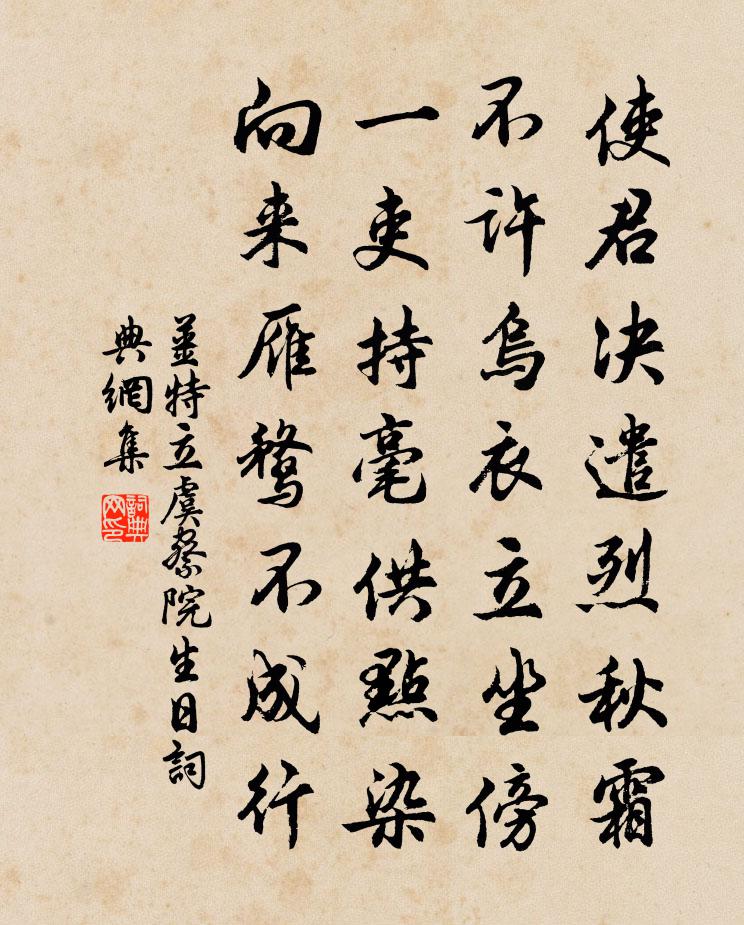 使君决遣烈秋霜
不许烏衣立坐傍
一吏持毫供點染
向来雁鶩不成行
姜特立虞察院生日詞
典網集
詞典网印